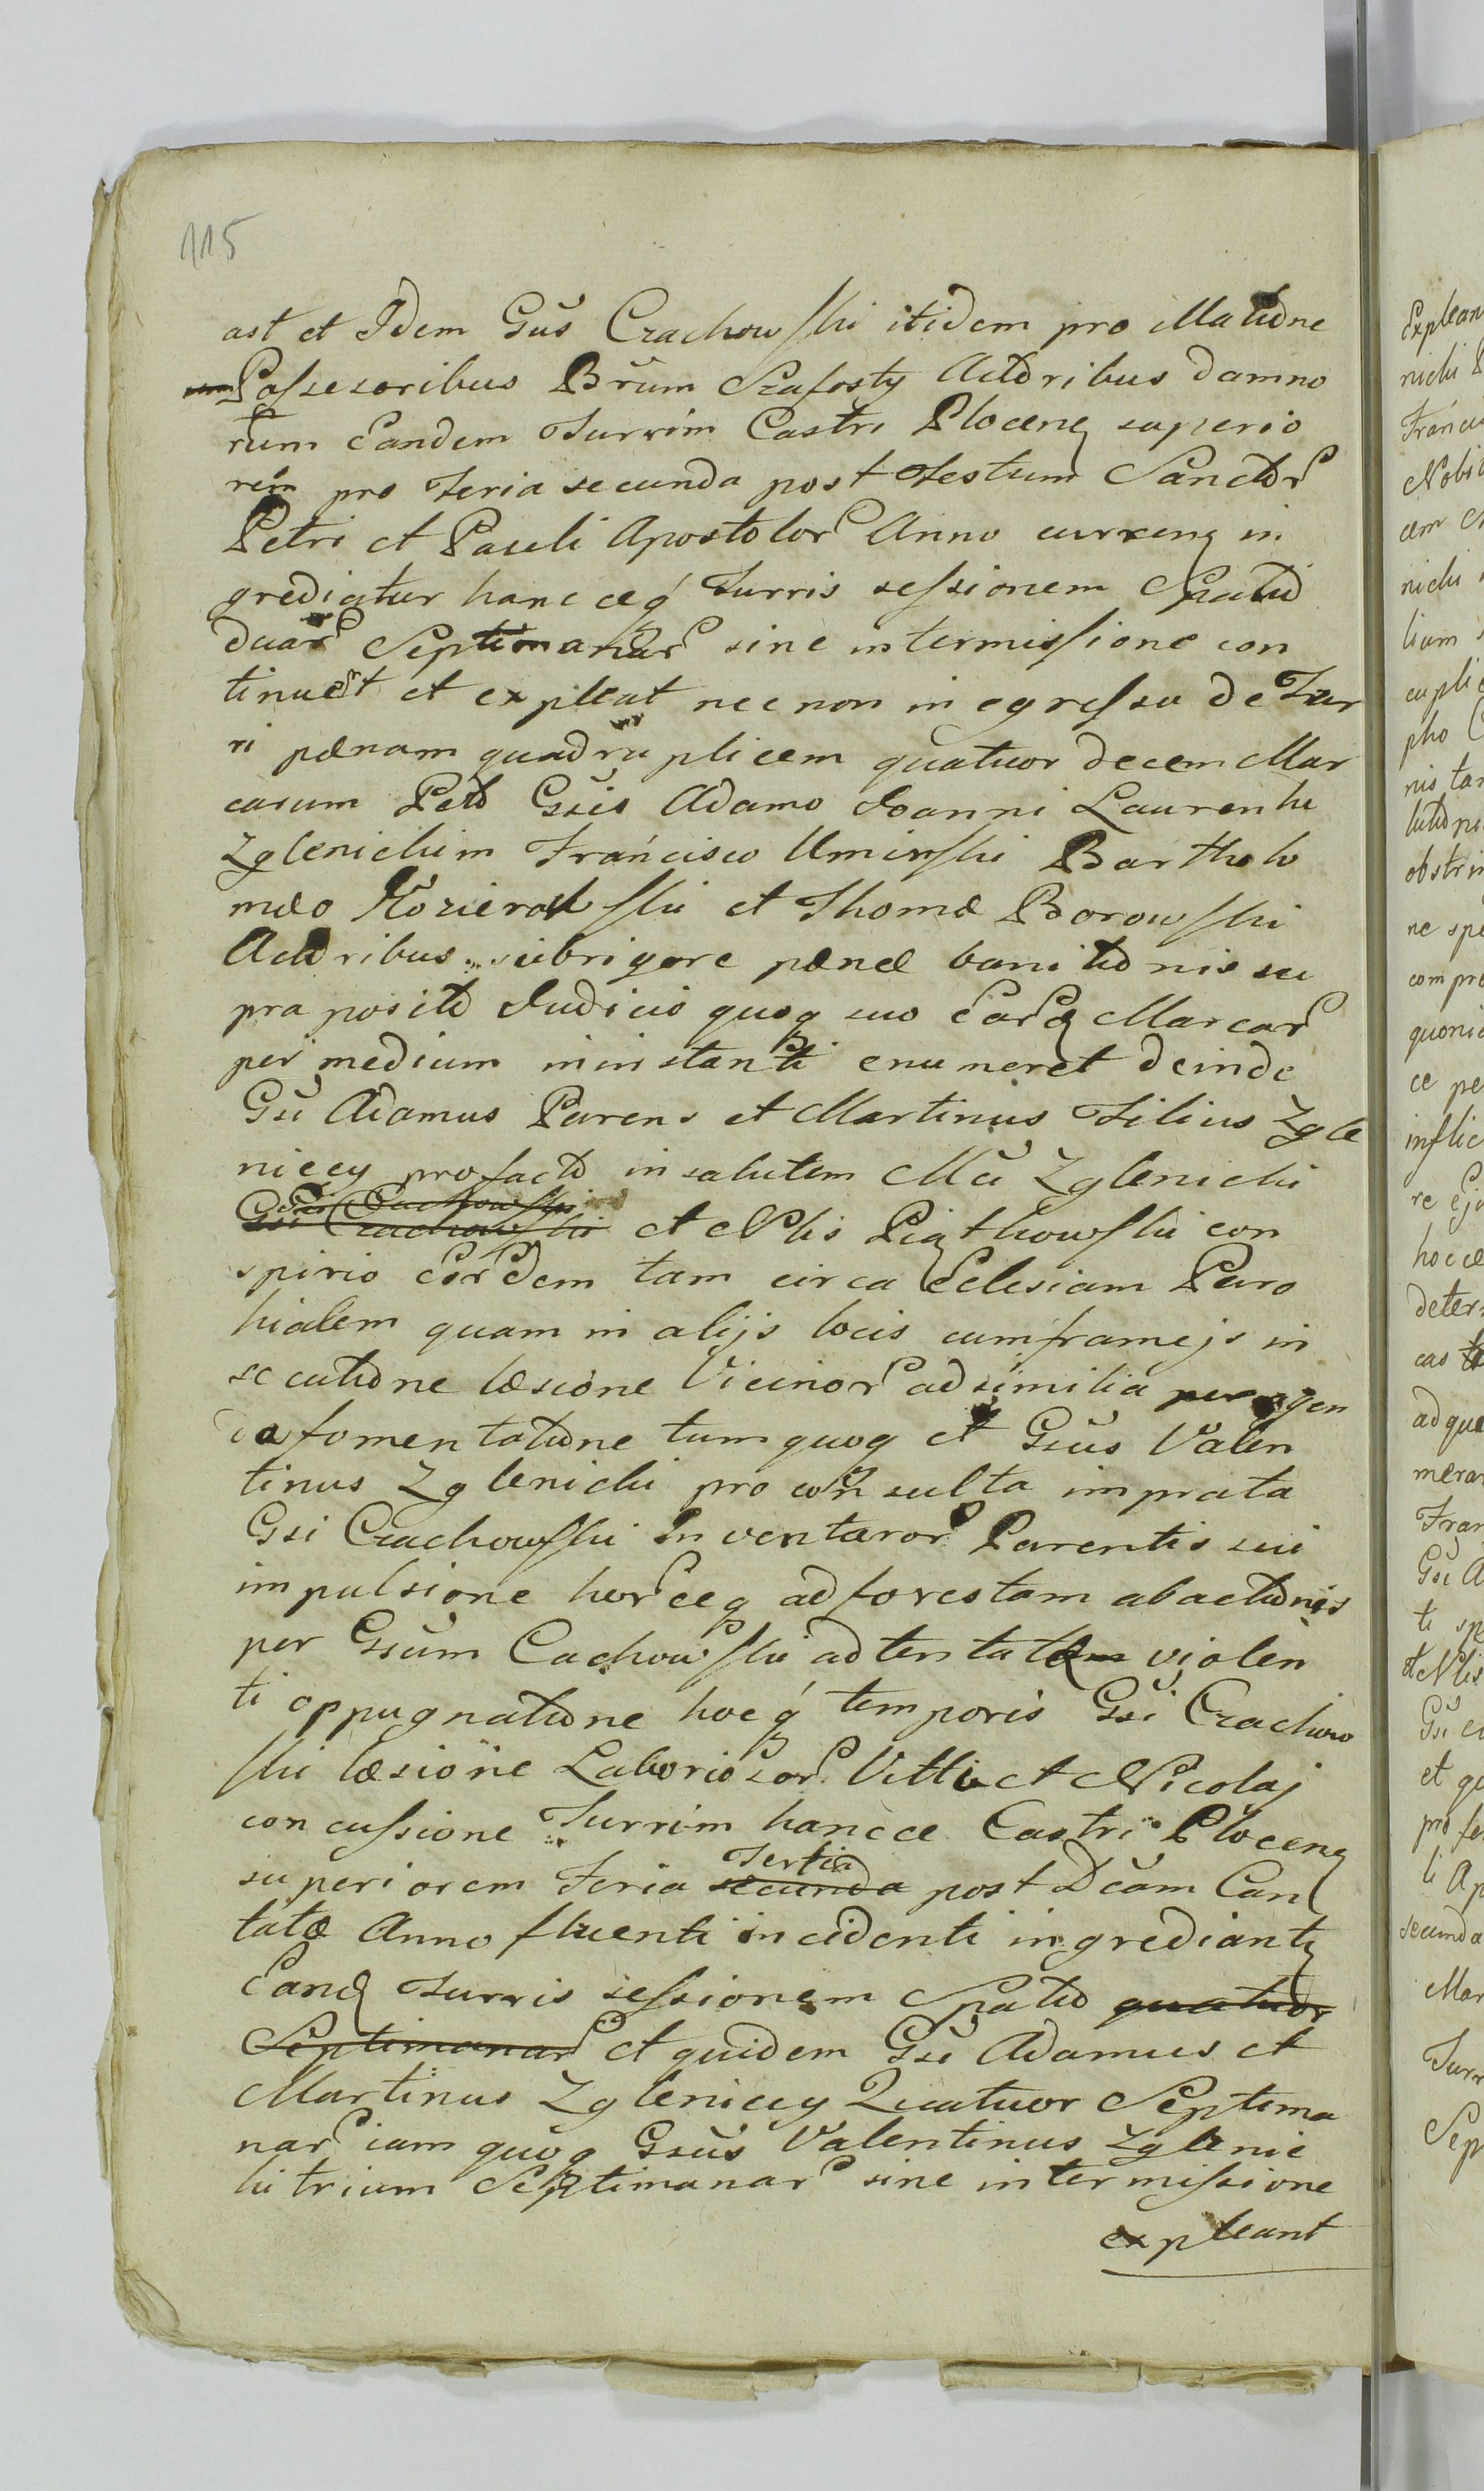 115
ast et Idem Gsus Czachowski itidem pro illatione
Possessoribus Brum Szafosty Actoribus damno
rum Eandem Turrim Castri Plocens superio
rem pro Feria secunda post Festum Sanctor
Petri et Pauli Apostolor Anno currens in
grediatur hancceq Turris sessionem Spatio
duar Septimanar sine intermissione con
tinuet et expleat nec non in egressu de Tur
ri pænam quadruplicem quatuor decem Mar
carum Petd Gsis Adamo Joanni Laurentu
Zglenickim Francisco Uminski Bartholo
mæo Kozierowski et Thomæ Borowski
Actoribus sub rigore pænæ banitionis su
pra posito Judicio quoq suo Earq Marcar
per medium ininstanti enumeret deinde
Gsi Adamus Parens et Martinus Filius Zgle
niccy pro facto in salutem Mci Zglenicki
Gsi Czachowski et Nblis Piątkowski con
spirio Eordem tam circa Eclesiam Paro
hialem quam in alijs locis cum frameis in
secutione læsione Vicinor ad similia peragen
da fomentatione tum quoq et Gsus Valen
tinus Zglenicki pro consulta in prata
Gsi Czachowski Inventaror Parentis sui
impulsione horceq ad forestam abactionis
per Gsum Cachowski ad tentatæ violen
ti oppugnatione hocq temporis Gsi Czachow
ski læsione Laboriosor Vitti et Nicolaj
concussione Turrim hancce Castri Plocens
Tertia
superiorem Feria secunda post Dcam Can
tatæ Anno fluenti incidenti ingrediantq
Eand Turris sessionem Spatio quatuor
Septimanar et quidem Gsi Adamus et
Martinus Zgleniccy Quatuor Septima
nar iam quoq Gsus Valentinus Zglenic
ki trium Septimanar sine intermissione
expleant